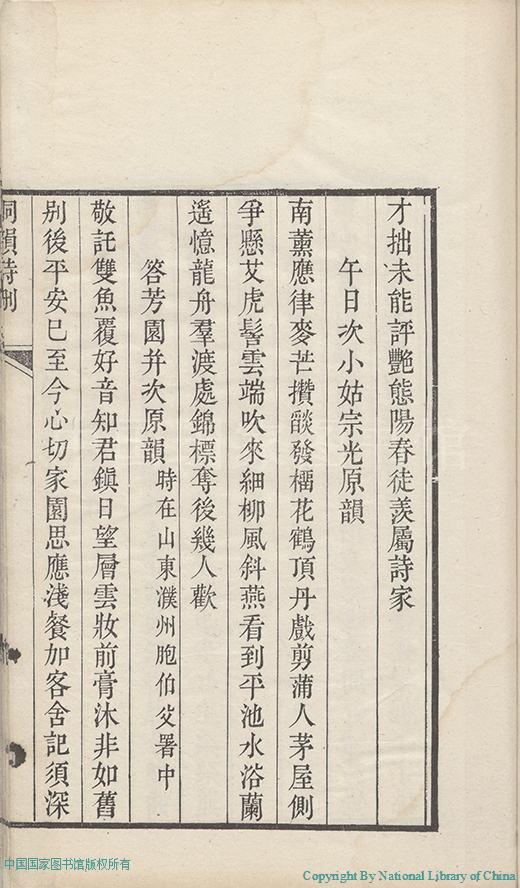 才拙未能評艷態陽春徒羡屬詩家
午日次小姑宗光原韻
南薰應律麥芒攢燄發榴花鶴頂丹戲剪蒲人茅屋側
爭懸艾虎髻雲端吹來細柳風斜燕看到平池水浴蘭
遙憶龍舟羣渡處錦標奪後幾人歡
答芳園并次原韻 時在山東濮州胞伯父署中
敬託雙魚覆好音知君鎮日望層雲妝前膏沐非如舊
別後平安巳至今心切家園思應淺餐加客舍記須深
韻詩刪
中国国家图书馆版权所有
Copyright By National Library of China